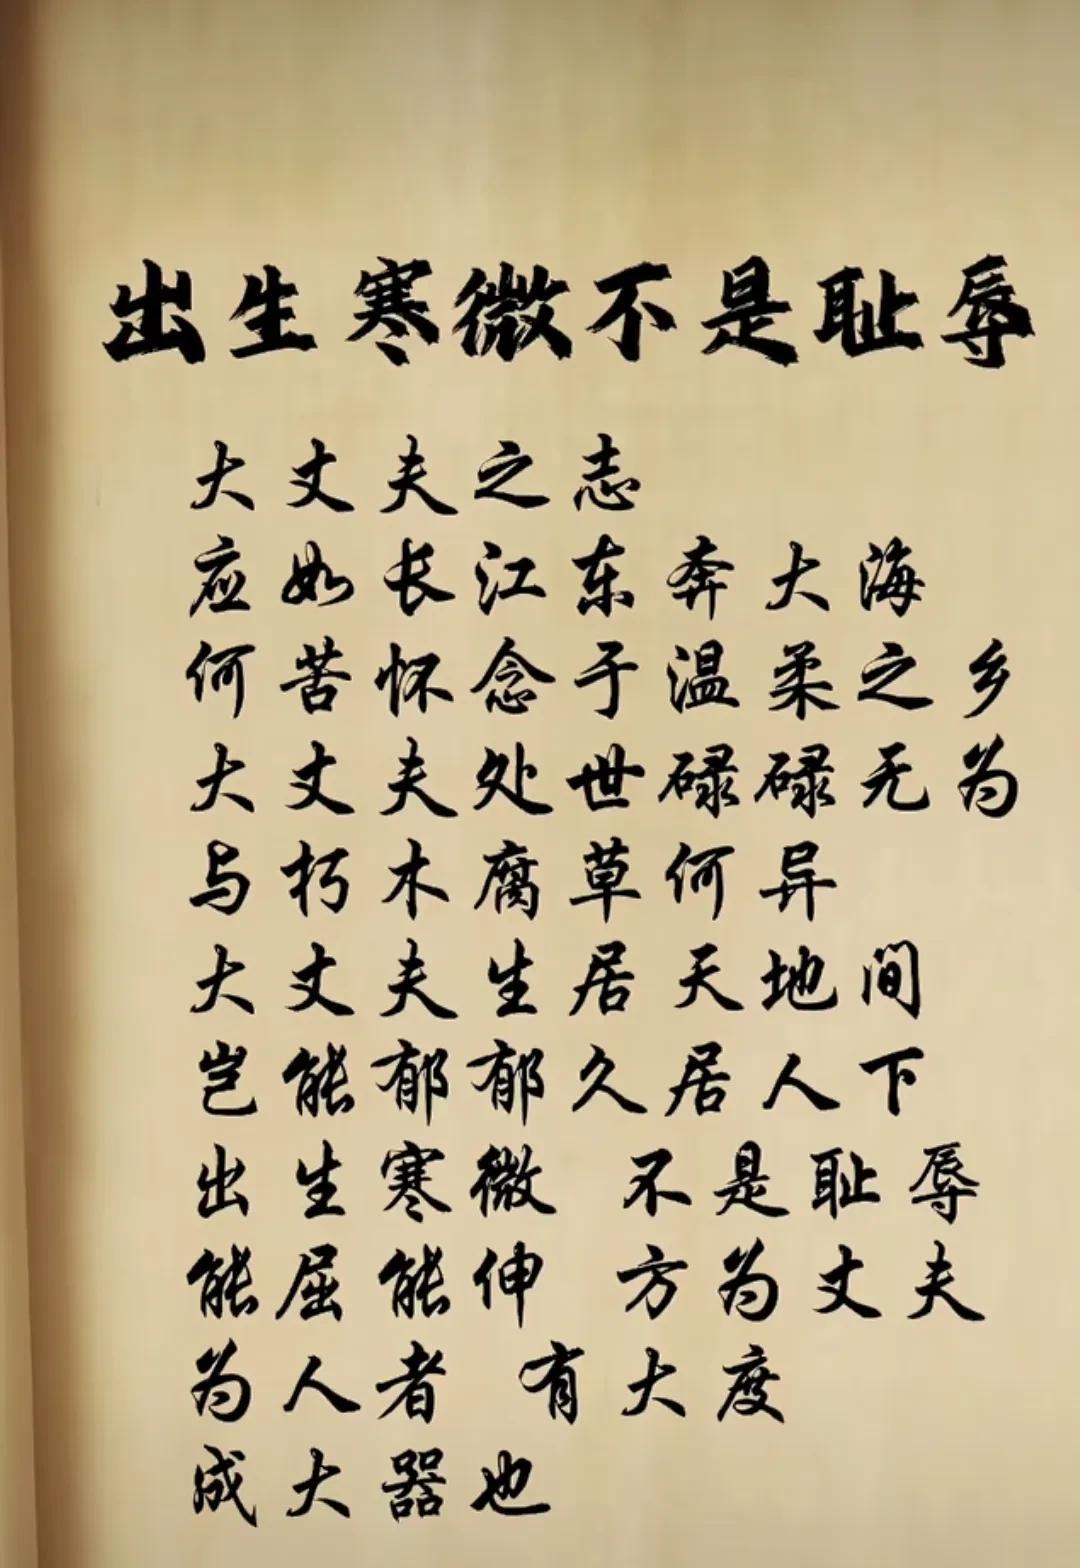 出生寒微不是耻辱
大丈夫之志
应如长江东奔大海
何苦怀念于温柔之乡
大丈夫处世碌碌无为
与朽木腐草何异
大丈夫生居天地间
岂能郁郁久居人下
出生寒微 不是耻辱
能屈能伸 方为丈夫
为人者 有大度
成大器也